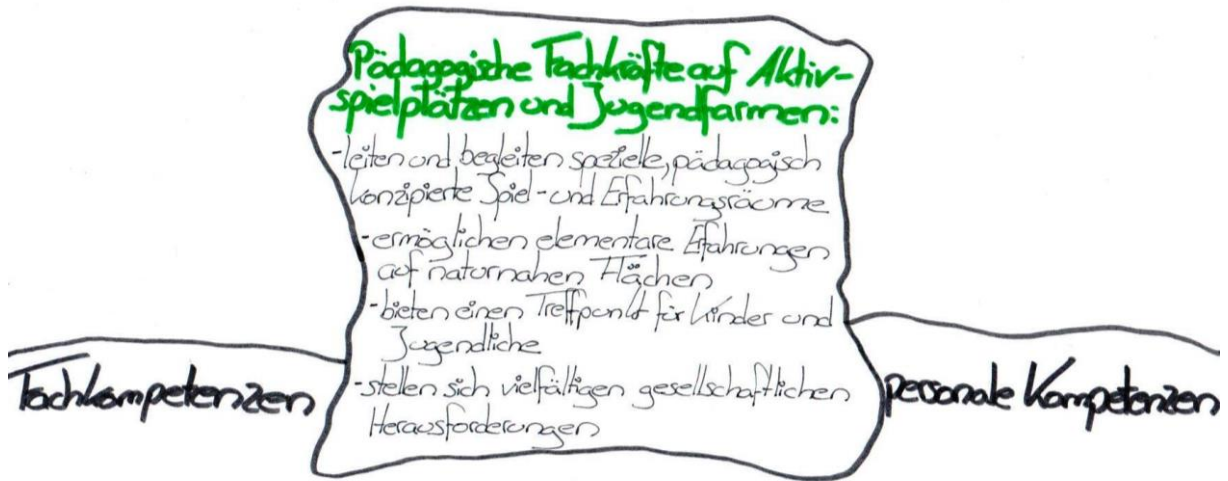 Pädagogische Fachkräfte auf Aktiv-
spielplätzen und Jugendfarmen:
-leiten und begleiten spezielle, pädagogisch
konzipierte Spiel- und Erfahrungsräume
-ermöglichen elementare Erfahrungen
auf naturnahen Flächen
-bieten einen Treffpunkt für Kinder und
Jugendliche
-stellen sich vielfältigen gesellschaftlichen
Herausforderungen
Fachkompetenzen
personale Kompetenzen